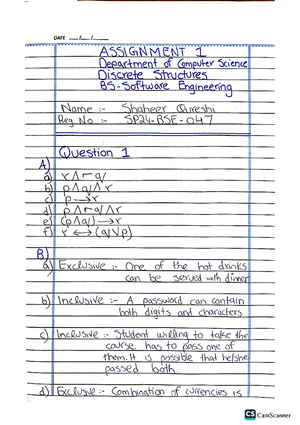 DATE __/__/__
ASSIGNMENT 1
Department of Computer Science
Discrete Structures
BS-Software Engineering
Name :- Shaheer Qureshi
Reg No :- SP24-BSE-047
Question 1
A)
a) r ∧ ¬q
b) p ∧ q ∧ r
c) p → r
d) p ∧ ¬q ∧ r
e) (p ∧ q) → r
f) r ↔ (q ∨ p)
B)
a) Exclusive :- One of the hot drinks
can be served with dinner
b) Inclusive :- A password can contain
both digits and characters
c) Inclusive :- Student willing to take the
course has to pass one of
them. It is possible that he/she
passed both.
d) Exclusive :- Combination of currencies is
CS CamScanner